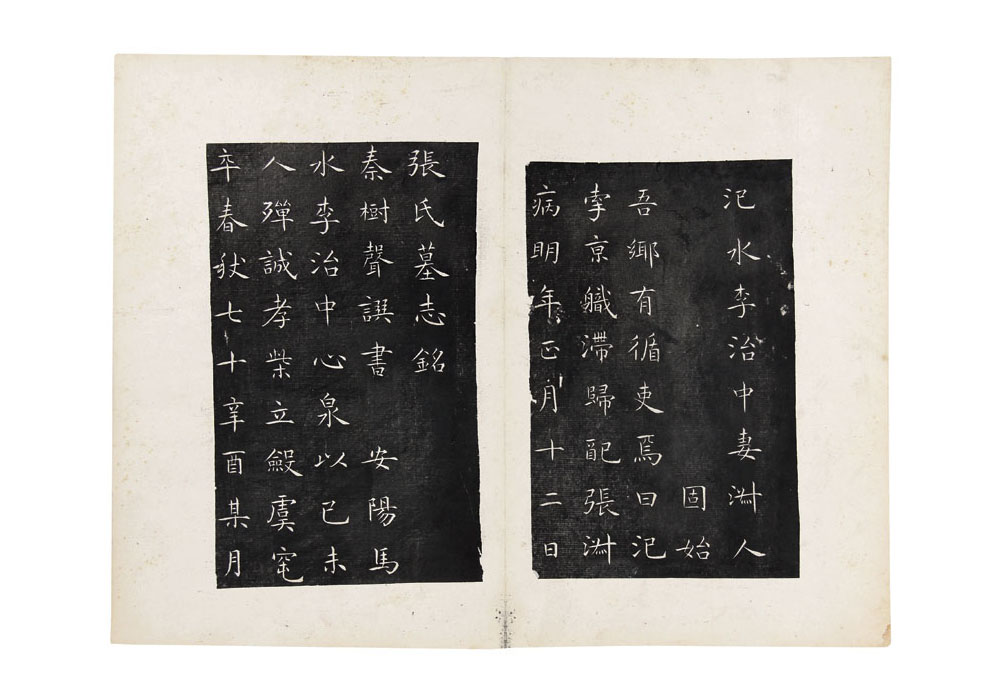 汜水李治中妻淑人
固始
吾鄉有循吏焉曰汜
京軄滯歸配張淑
病明年正月十二日
張氏墓志銘
秦樹聲譔書 安陽馬
水李治中心泉以己未
人殫誠孝柴立斂虞窀
卒春秋七十辛酉某月